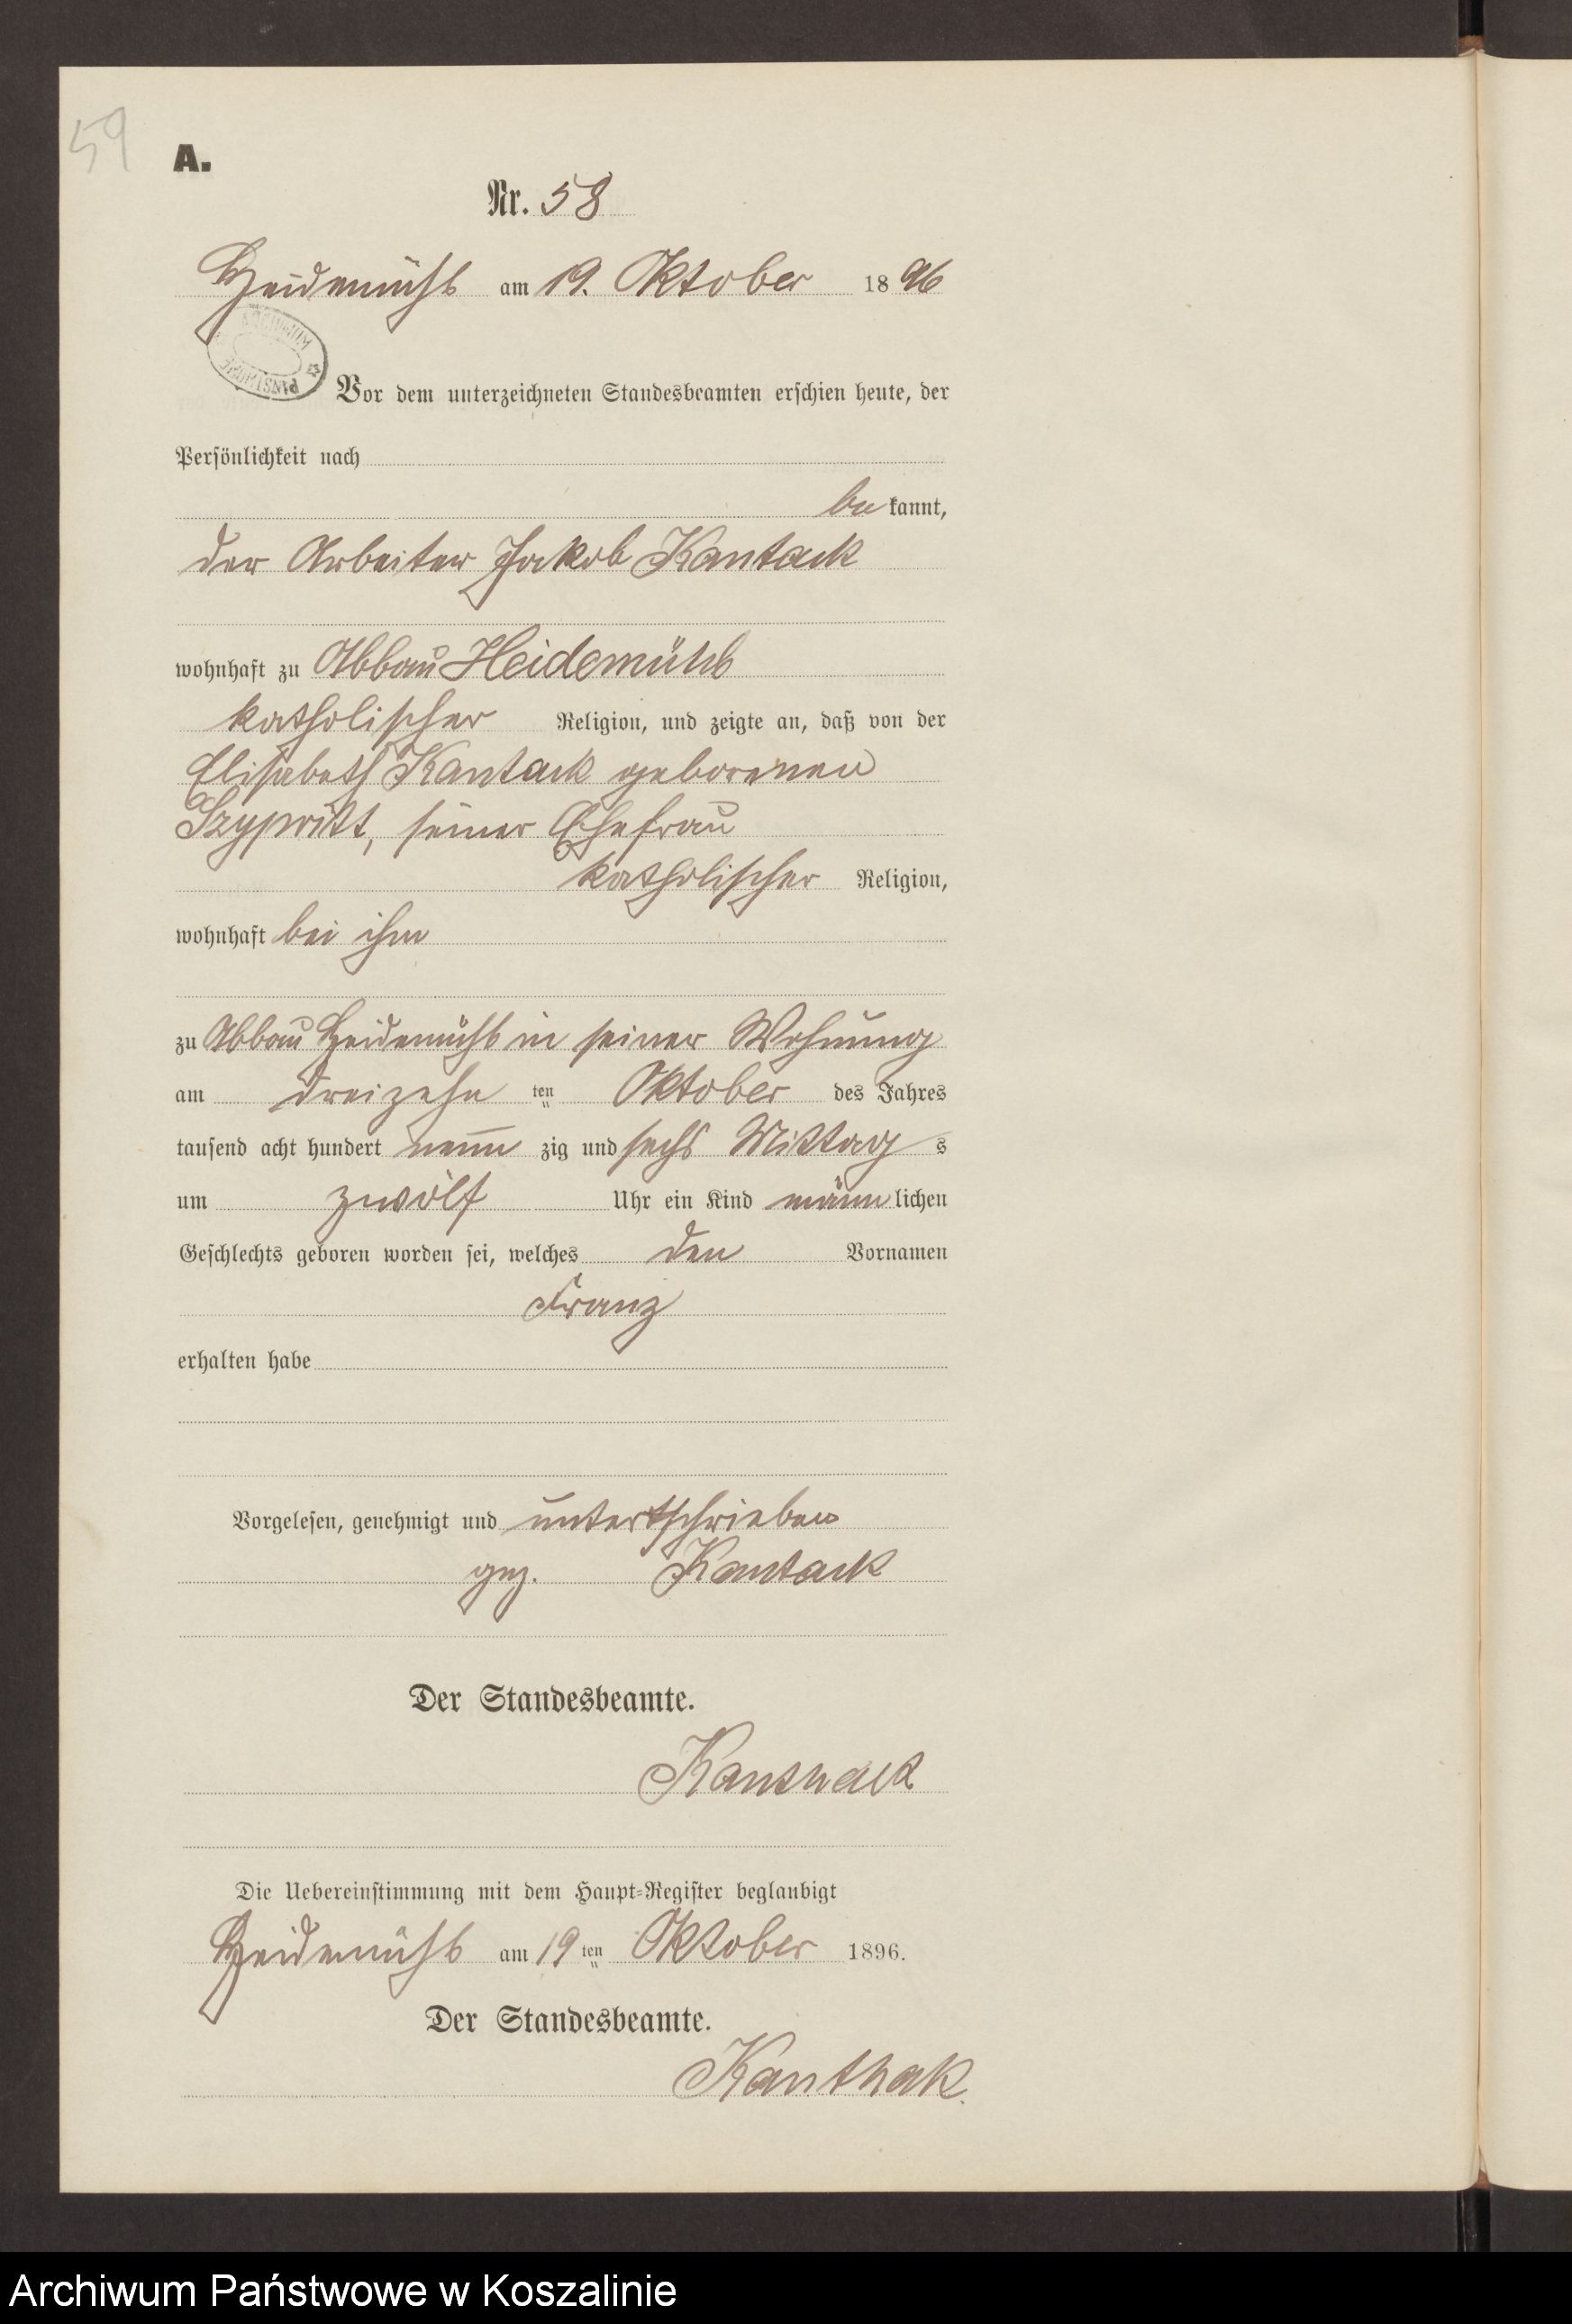 59
A.
Nr. 58
Heidemühl am 19. Oktober 1896
Vor dem unterzeichneten Standesbeamten erschien heute, der
Persönlichkeit nach
bekannt,
der Arbeiter Jakob Kantack
wohnhaft zu Abbau Heidemühl
katholischer Religion, und zeigte an, daß von der
Elisabeth Kantack geborenen
seiner Ehefrau
katholischer Religion,
wohnhaft bei ihm
zu Abbau Heidemühl in seiner Wohnung
am dreizehn ten Oktober des Jahres
tausend acht hundert neun zig und sechs Mittags
um zwölf Uhr ein Kind männlichen
Geschlechts geboren worden sei, welches den Vornamen
Franz
erhalten habe
Vorgelesen, genehmigt und unterschrieben
gez. Kantack
Der Standesbeamte.
Kanthack
Die Uebereinstimmung mit dem Haupt-Register beglaubigt
Heidemühl am 19 ten Oktober 1896.
Der Standesbeamte.
Kanthak.
Archiwum Państwowe w Koszalinie